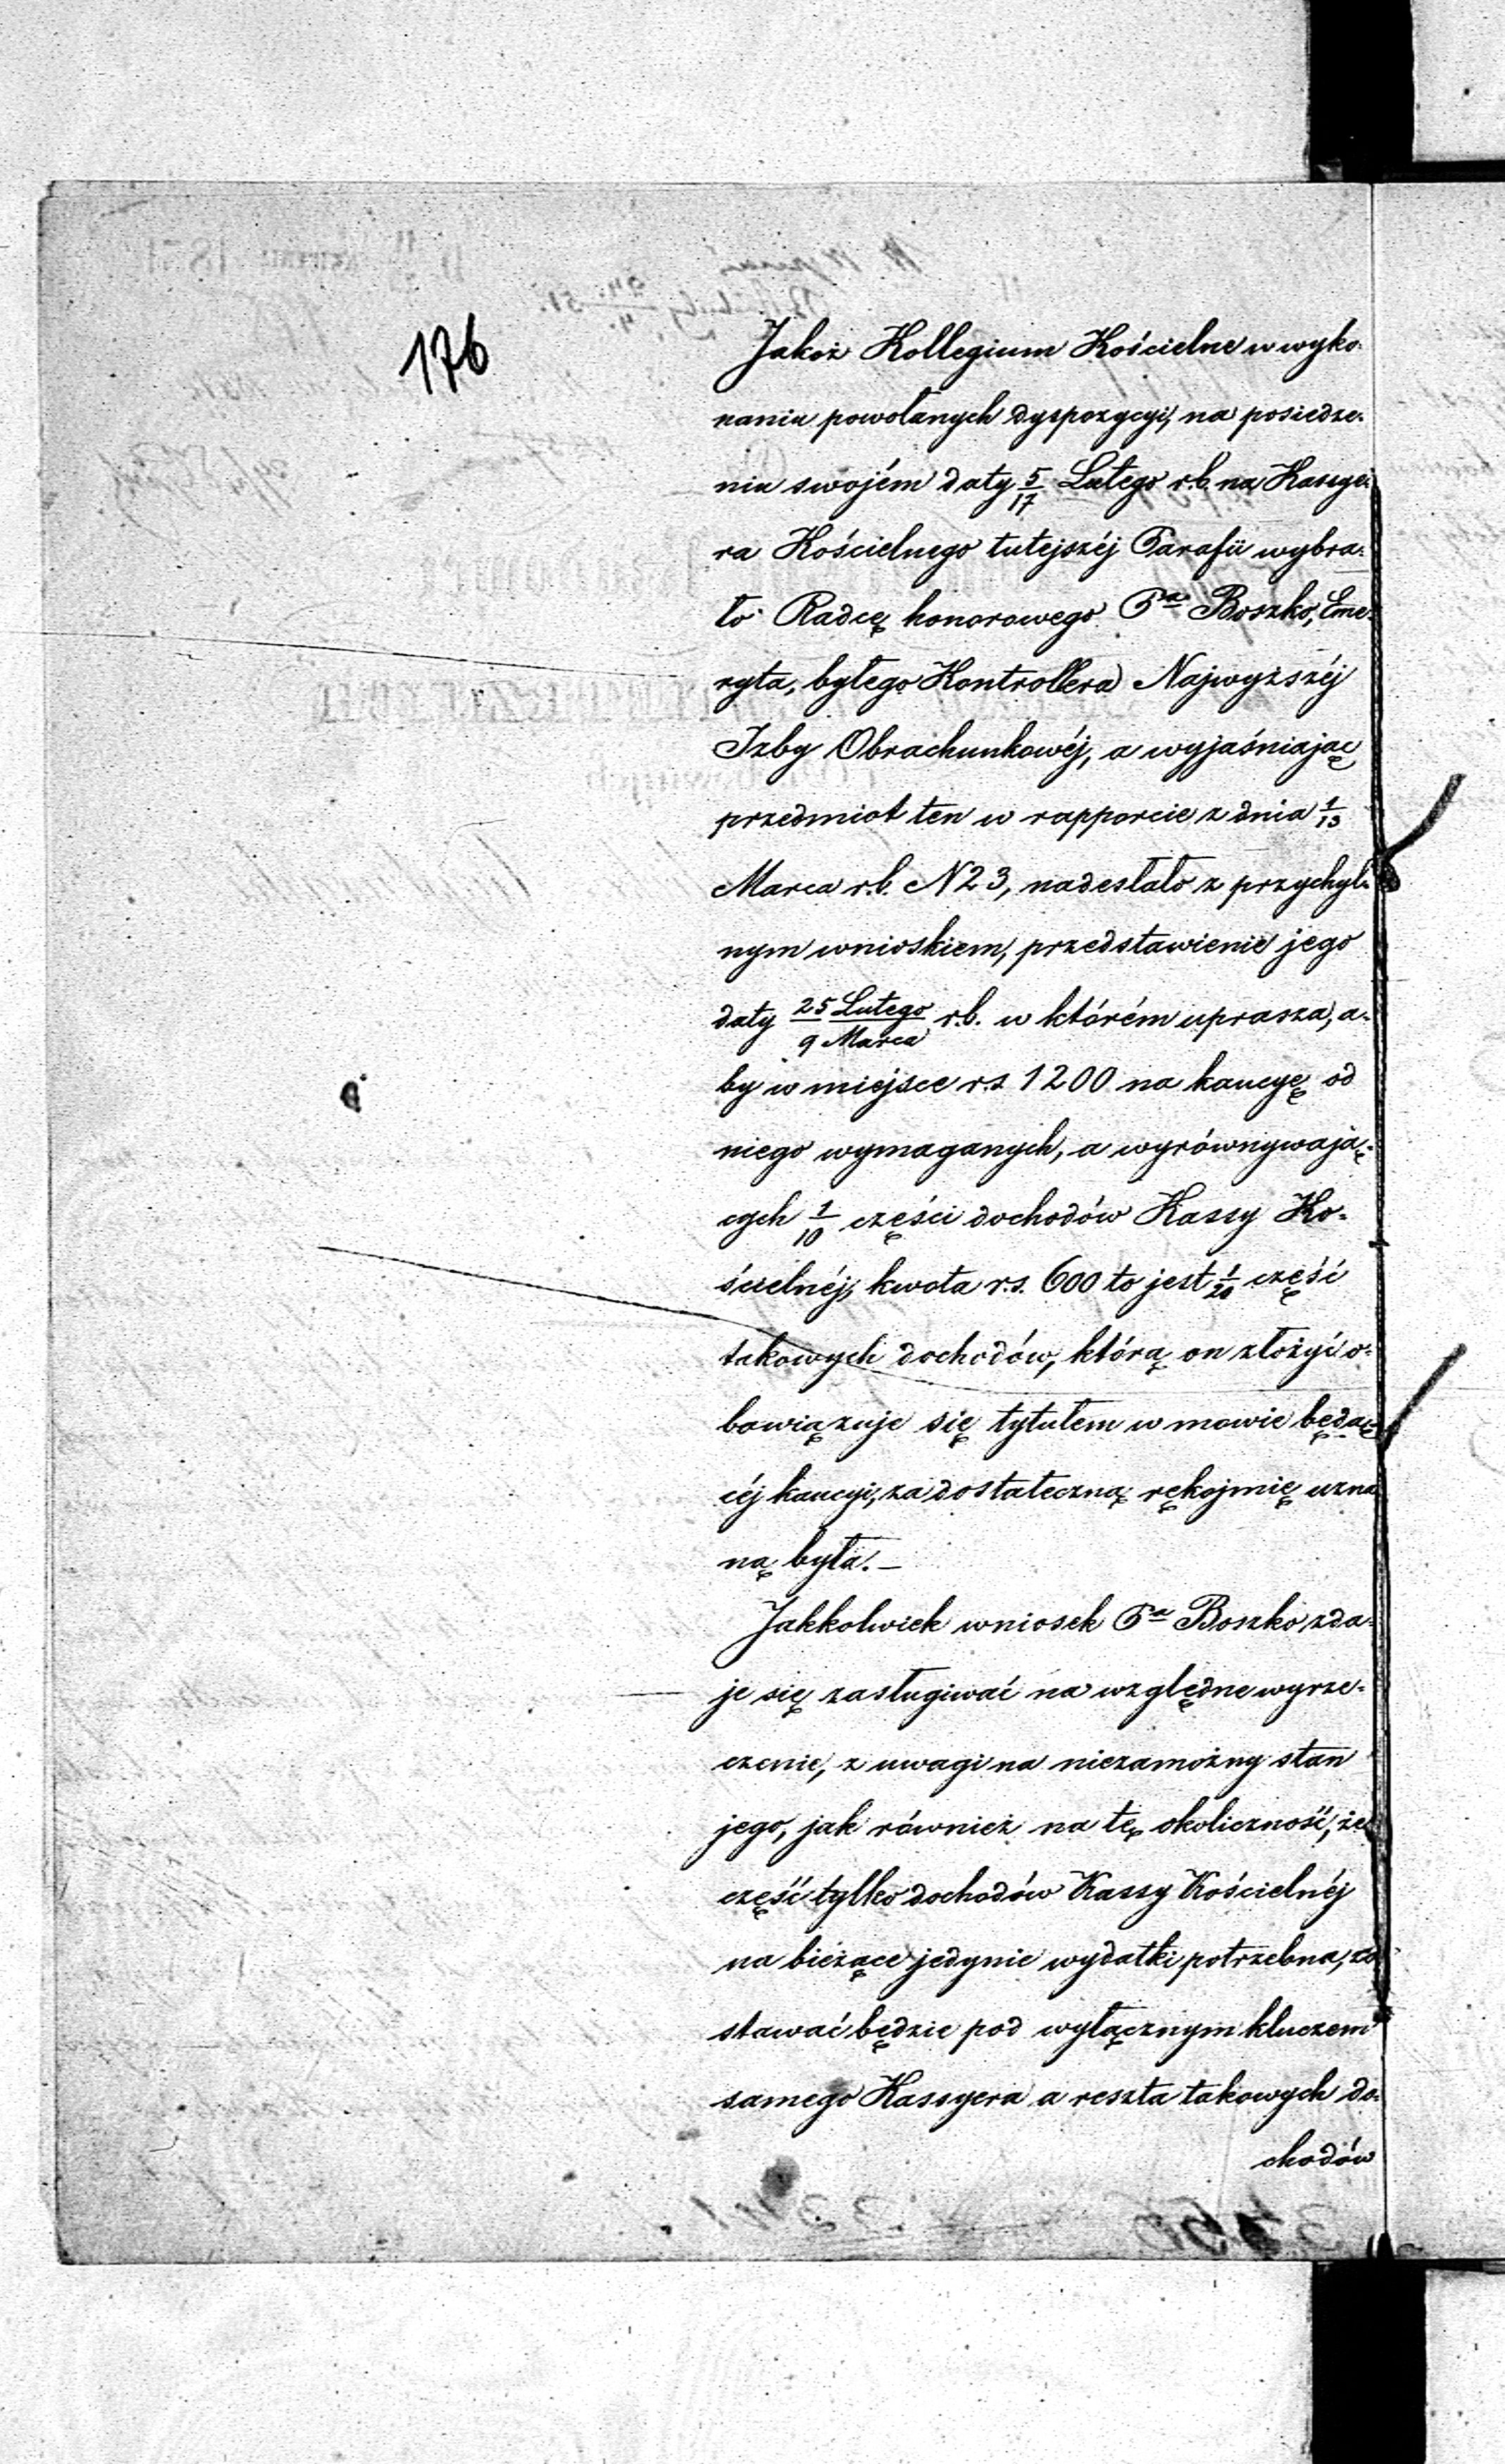 176
Jakoż Kollegium Kościelne w wyko-
naniu powołanych dyspozycyi, na posiedze-
niu swojém daty 5/17 Lutego r.b. na Kassye-
ra Kościelnego tutejszéj Parafii wybra-
ło Radcę honorowego Pa Boszko, Eme-
ryta, byłego Kontrollera Najwyższéj
Izby Obrachunkowéj, a wyjaśniając
przedmiot ten w rapporcie z dnia 1/13
Marca r.b. N 23, nadesłało z przychyl-
nym wnioskiem, przedstawienie jego
daty 25 Lutego/9 Marca r.b. w którém uprasza, a-
by w miejsce r.s. 1200 na kaucyę od
niego wymaganych, a wyrównywają-
cych 1/10 części dochodów Kassy Ko-
ścielnéj, kwota r.s. 600 to jest 1/20 część
takowych dochodów, którą on złożyć o-
bowiązuje się tytułem w mowie będą-
céj kaucyi, za dostateczną rękojmię uzna
ną była. —
Jakkolwiek wniosek Pa Boszko zda-
je się zasługiwać na względne wyrze-
czenie, z uwagi na niezamożny stan
jego, jak również na tę okoliczność, że
część tylko dochodów Kassy Kościelnéj
na bieżące jedynie wydatki potrzebna, zo
stawać będzie pod wyłącznym kluczem
samego Kassyera a reszta takowych do-
chodów